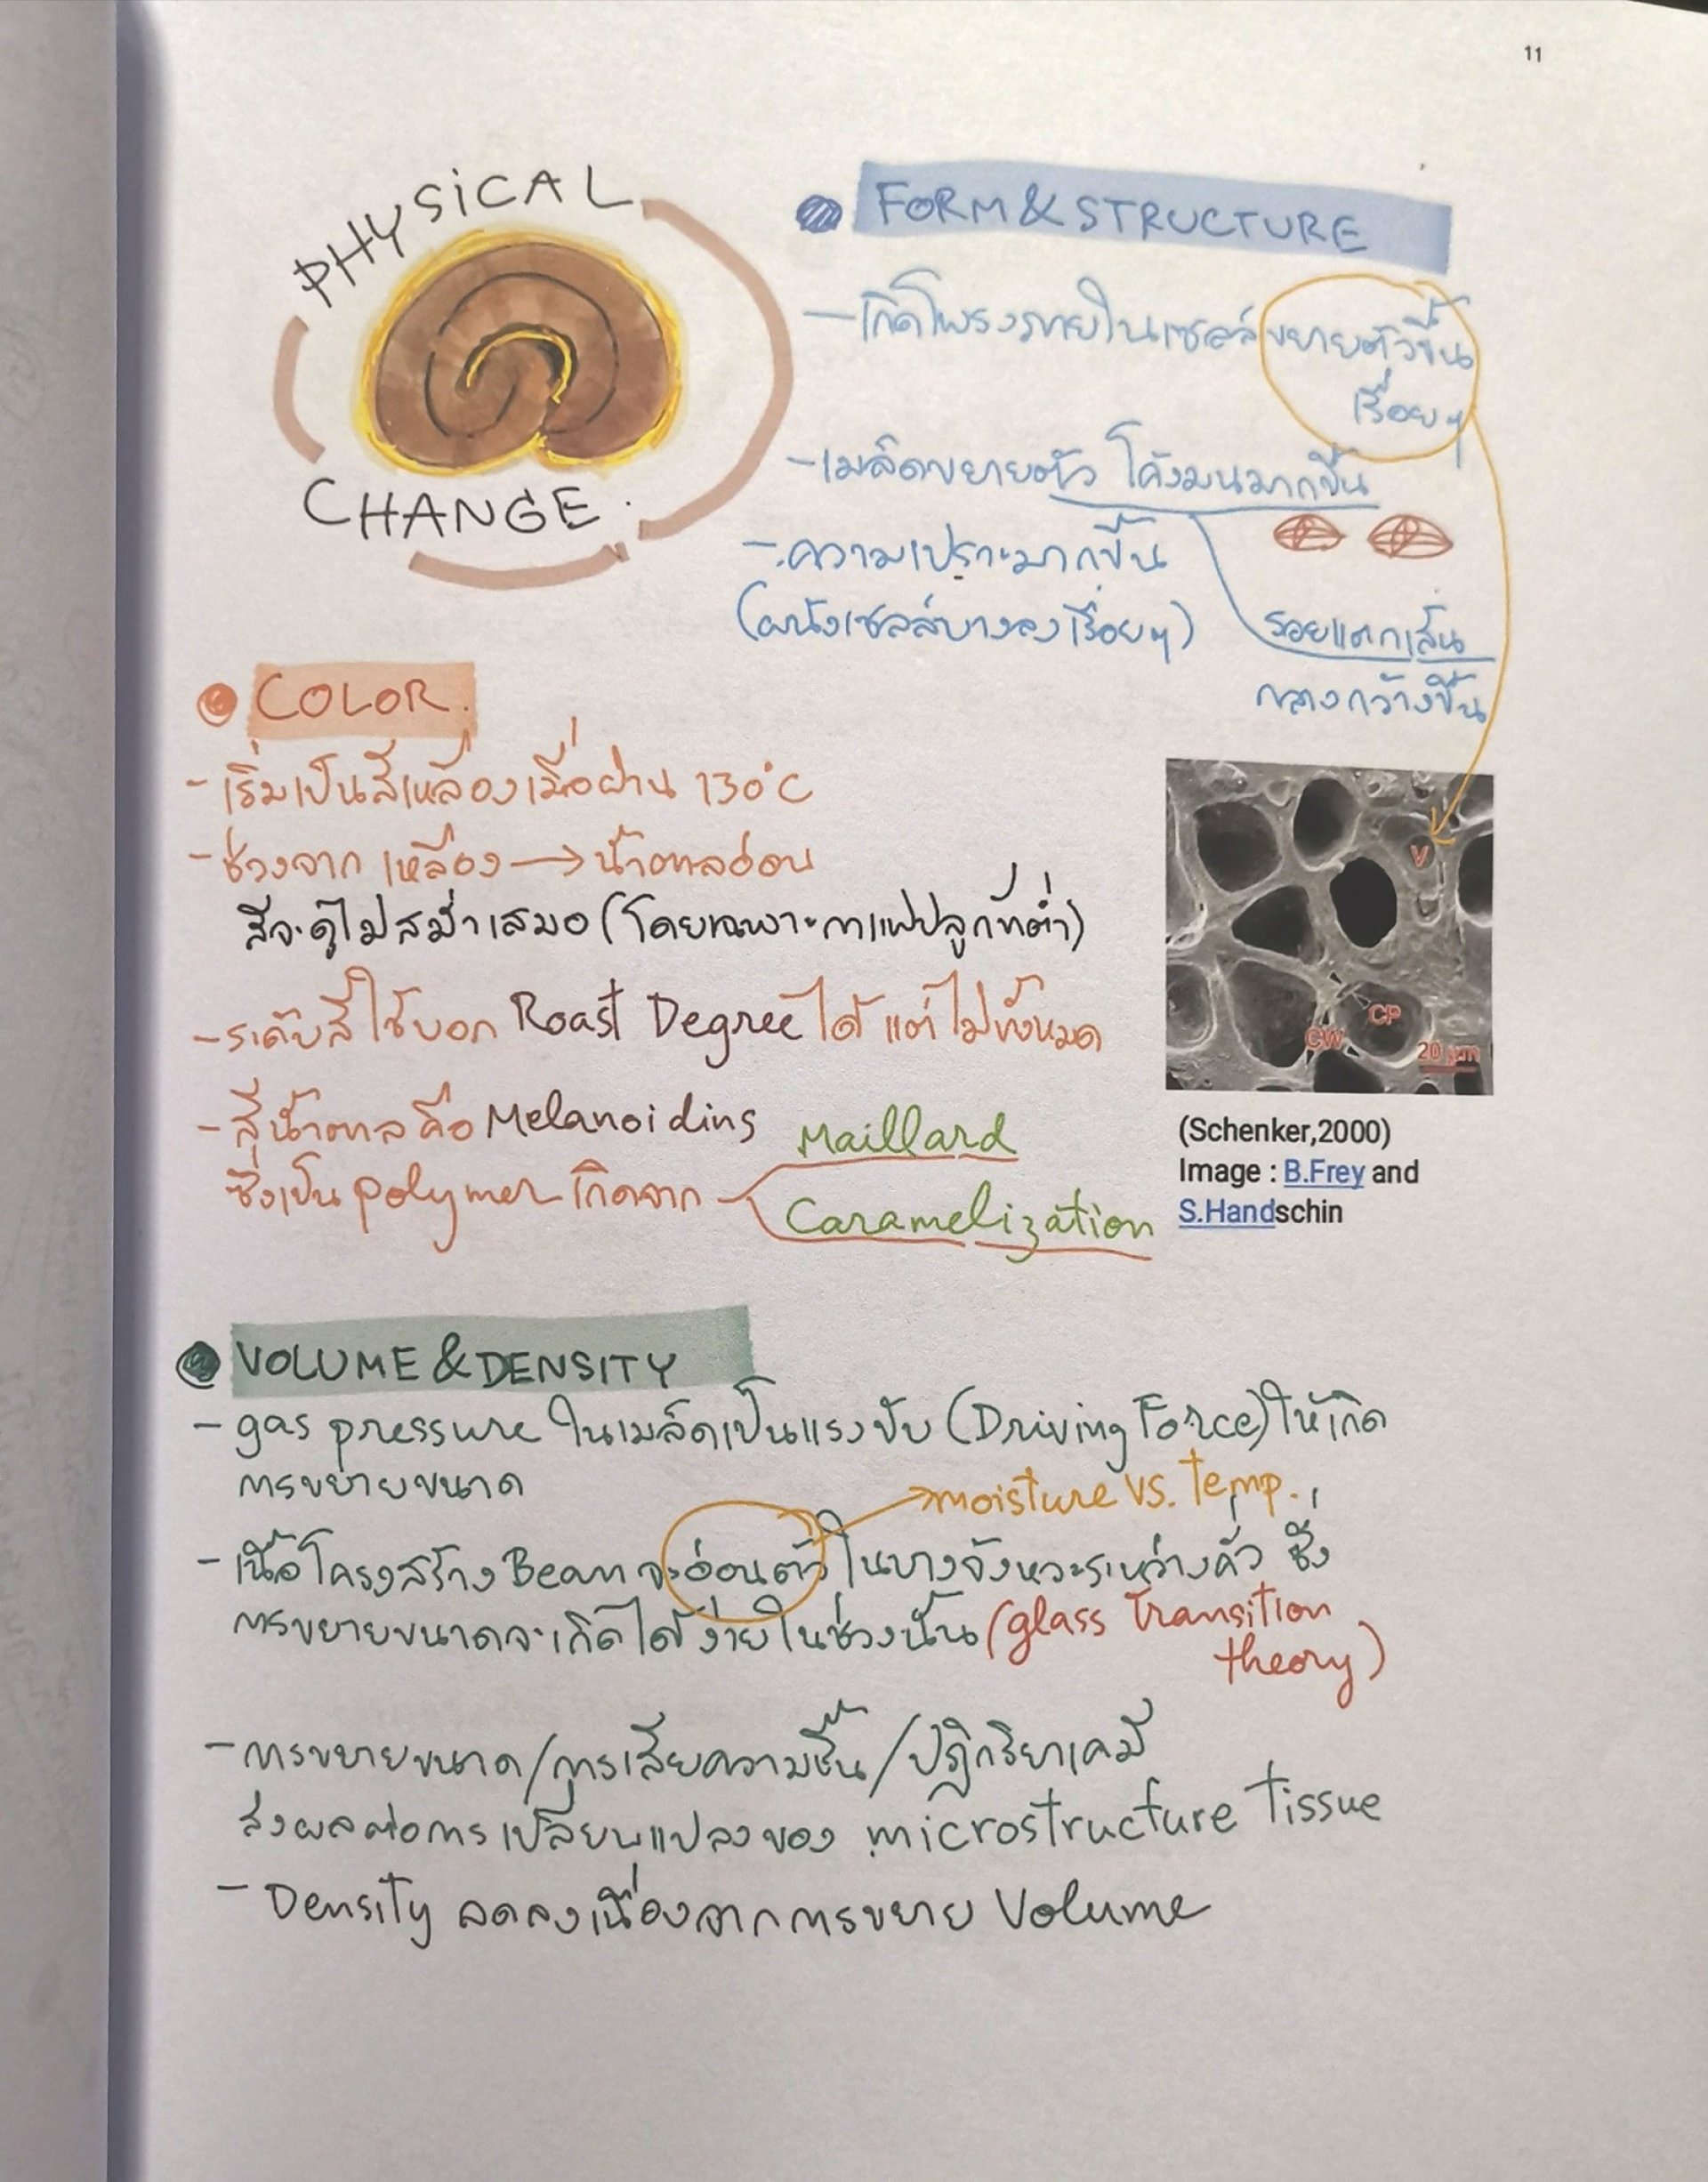 11
PHYSICAL
CHANGE.
FORM & STRUCTURE
- เกิดโพรงภายในเซลล์ ขยายตัวขึ้น
เรื่อยๆ
- เมล็ดขยายตัว โค้งมนมากขึ้น
- ความเปราะมากขึ้น
(ผนังเซลล์บางลงเรื่อยๆ)
รอยแตกเส้น
กลางกว้างขึ้น
COLOR.
- เริ่มเป็นสีเหลืองเมื่อผ่าน 130°C
- ช่วงจาก เหลือง → น้ำตาลอ่อน
สีจะดูไม่สม่ำเสมอ (โดยเฉพาะกาแฟปลูกที่ต่ำ)
- ระดับสีใช้บอก Roast Degree ได้ แต่ไม่ทั้งหมด
- สีน้ำตาลคือ Melanoidins
ซึ่งเป็น polymer เกิดจาก
Maillard
Caramelization
V
CP
CW
20 µm
(Schenker,2000)
Image : B.Frey and
S.Handschin
VOLUME & DENSITY
- gas pressure ในเมล็ดเป็นแรงขับ (Driving Force) ให้เกิด
การขยายขนาด
moisture vs. temp.
- เนื้อโครงสร้าง Bean จะอ่อนตัว ในบางจังหวะระหว่างคั่ว ซึ่ง
การขยายขนาดจะเกิดได้ง่ายในช่วงนั้น (glass transition
theory)
- การขยายขนาด/การเสียความชื้น/ปฏิกริยาเคมี
ส่งผลต่อการเปลี่ยนแปลงของ microstructure tissue
- Density ลดลงเนื่องจากการขยาย Volume